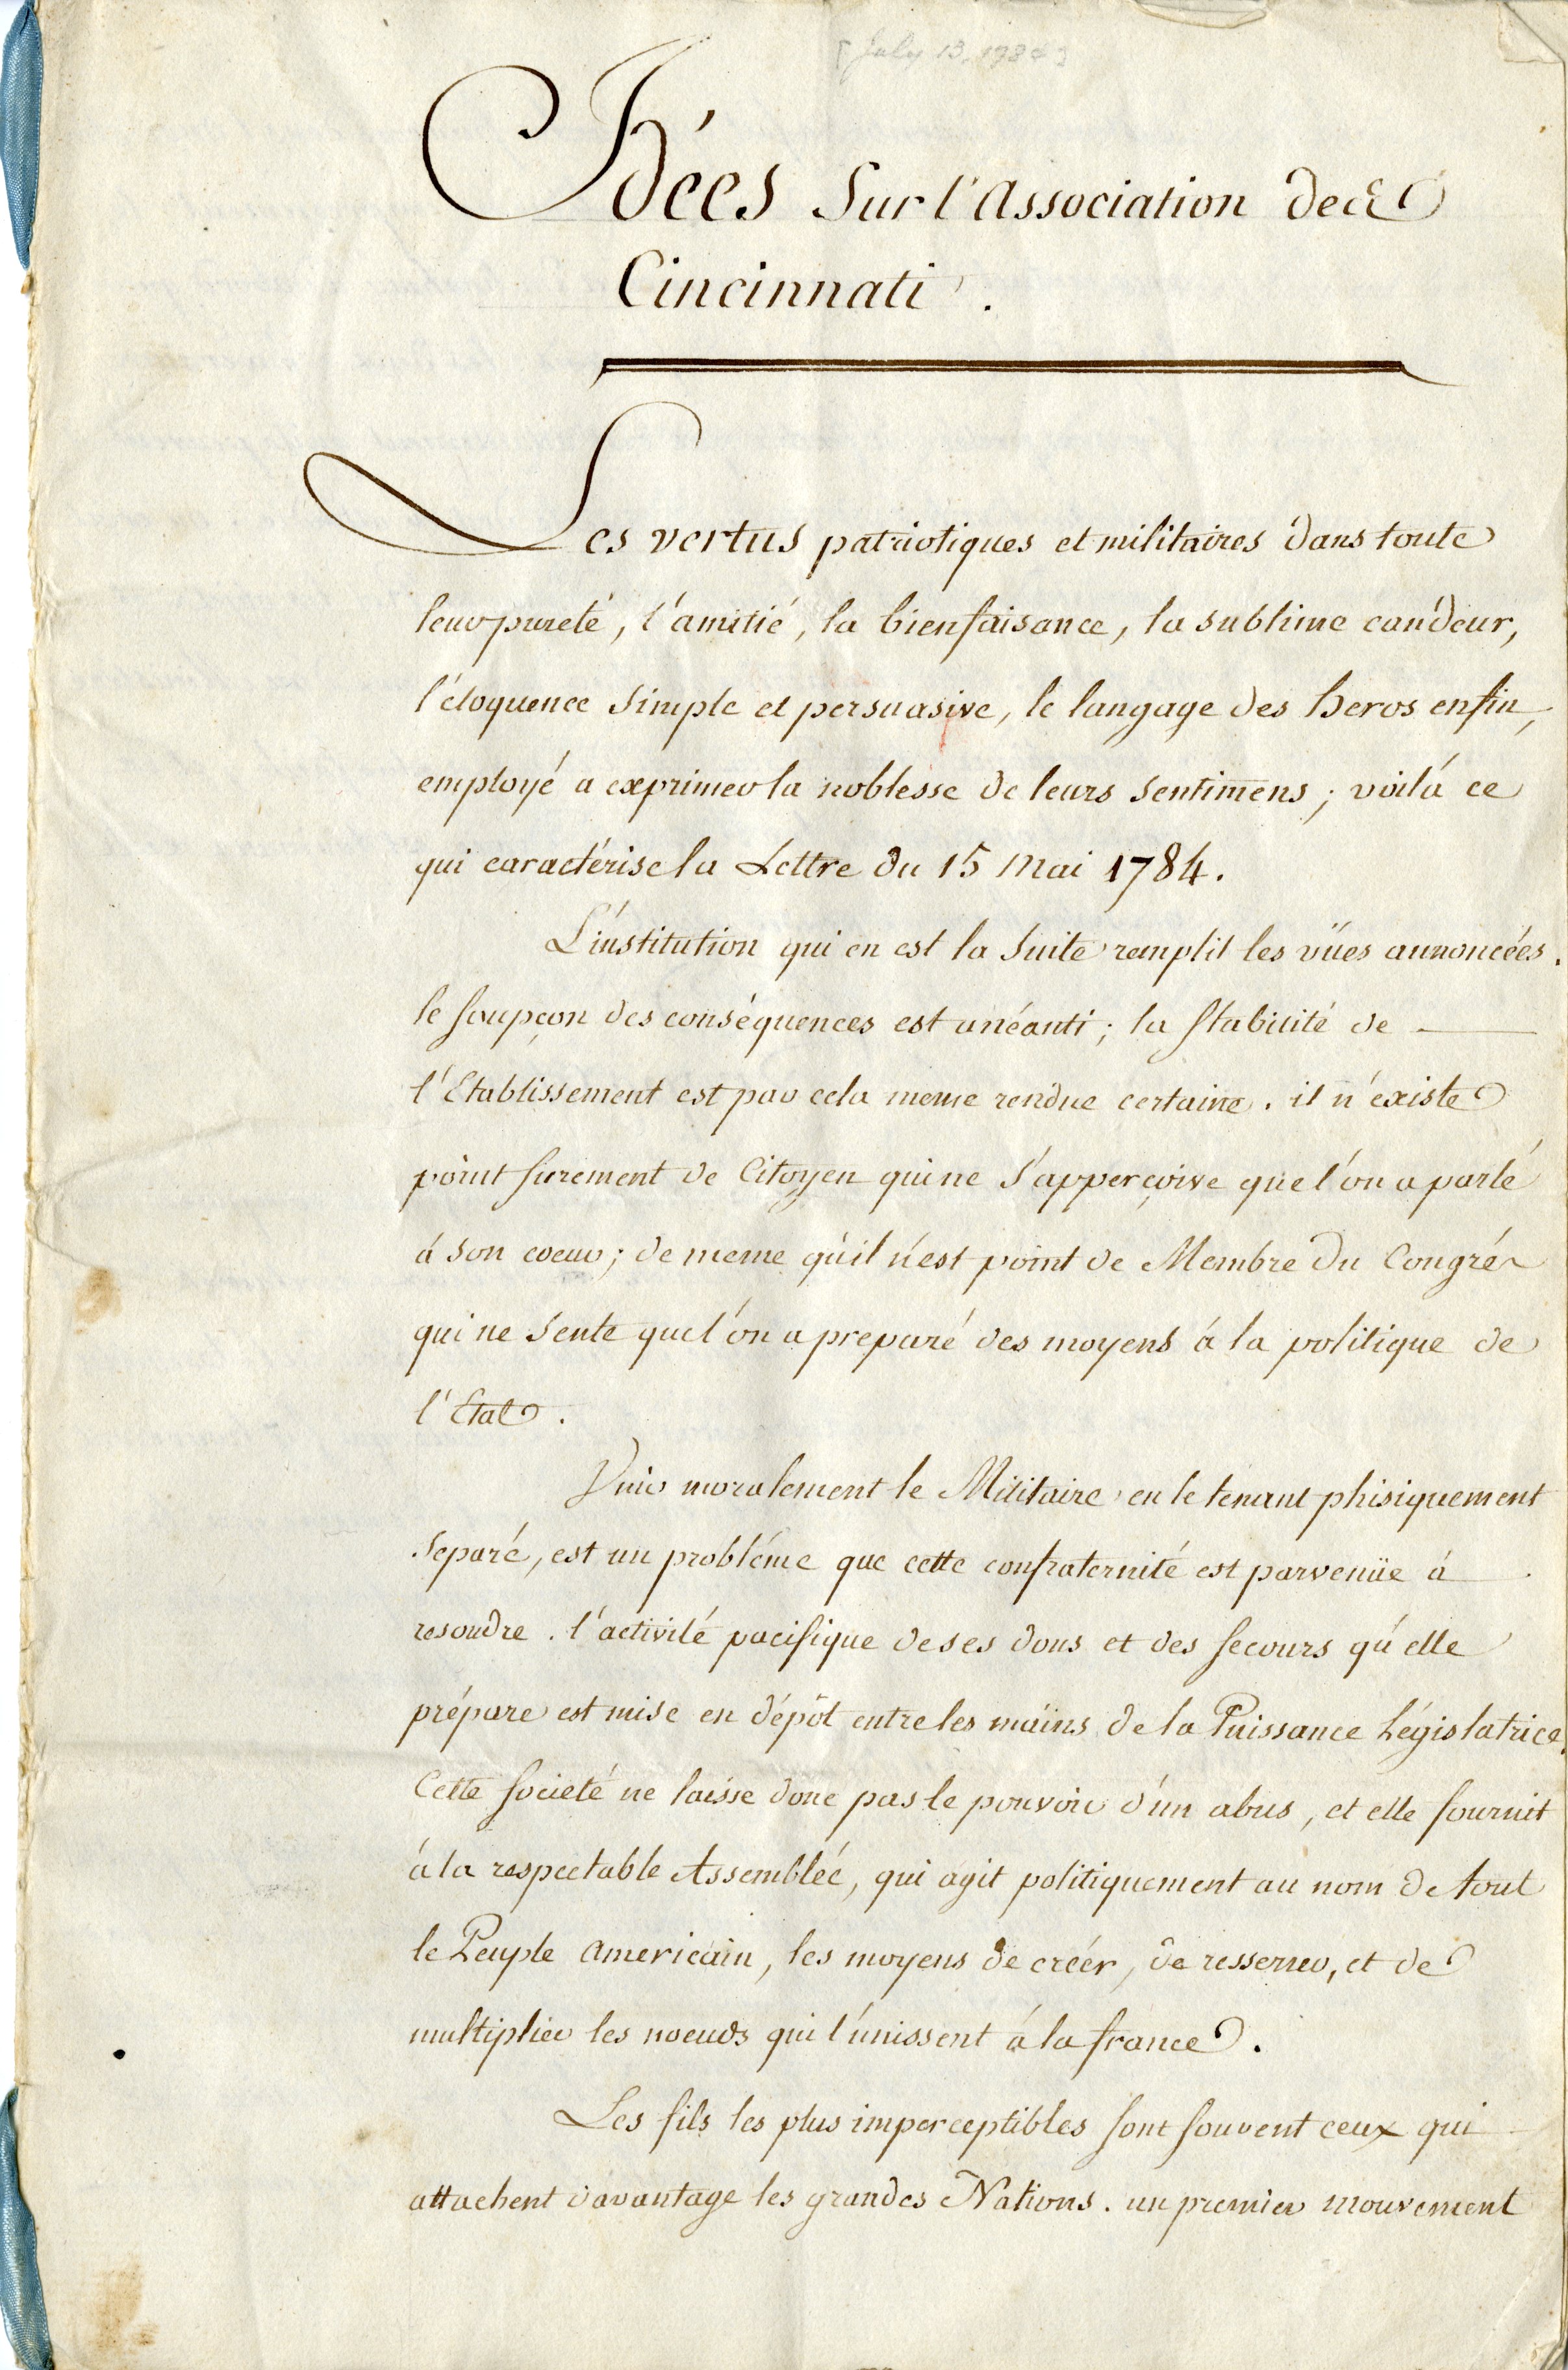 [July 13, 1784]
Idées Sur l'Association des
Cincinnati.
Les vertus patriotiques et militaires dans toute
leur pureté, l'amitié, la bienfaisance, la sublime candeur,
l'éloquence Simple et persuasive, le langage des heros enfin,
employé a exprimer la noblesse de leurs Sentimens; voilá ce
qui caractérise la Lettre du 15 Mai 1784.
L'institution qui en est la Suite remplit les vües annoncées.
le soupçon des conséquences est anéanti; la Stabilité de
l'Etablissement est par cela meme rendue certaine. il n'existe
point surement de Citoyen qui ne S'apperçoive que l'on a parlé
á Son coeur; de meme qu'il n'est point de Membre du Congrés
qui ne Sente que l'on a preparé des moyens á la politique de
l'Etat.
Unir moralement le Militaire en le tenant phisiquement
Separé, est un probléme que cette confraternité est parvenüe á
resoudre. l'activité pacifique de ses dons et des secours qu'elle
prépare est mise en dépôt entre les mains de la Puissance Législatrice.
Cette societé ne laisse donc pas le pouvoir d'un abus, et elle fournit
á la respectable Assemblée, qui agit politiquement au nom de tout
le Peuple americain, les moyens de créér, de resserrer, et de
multiplier les noeuds qui l'unissent á la france.
Les fils les plus imperceptibles sont souvent ceux qui
attachent davantage les grandes Nations. un premier mouvement